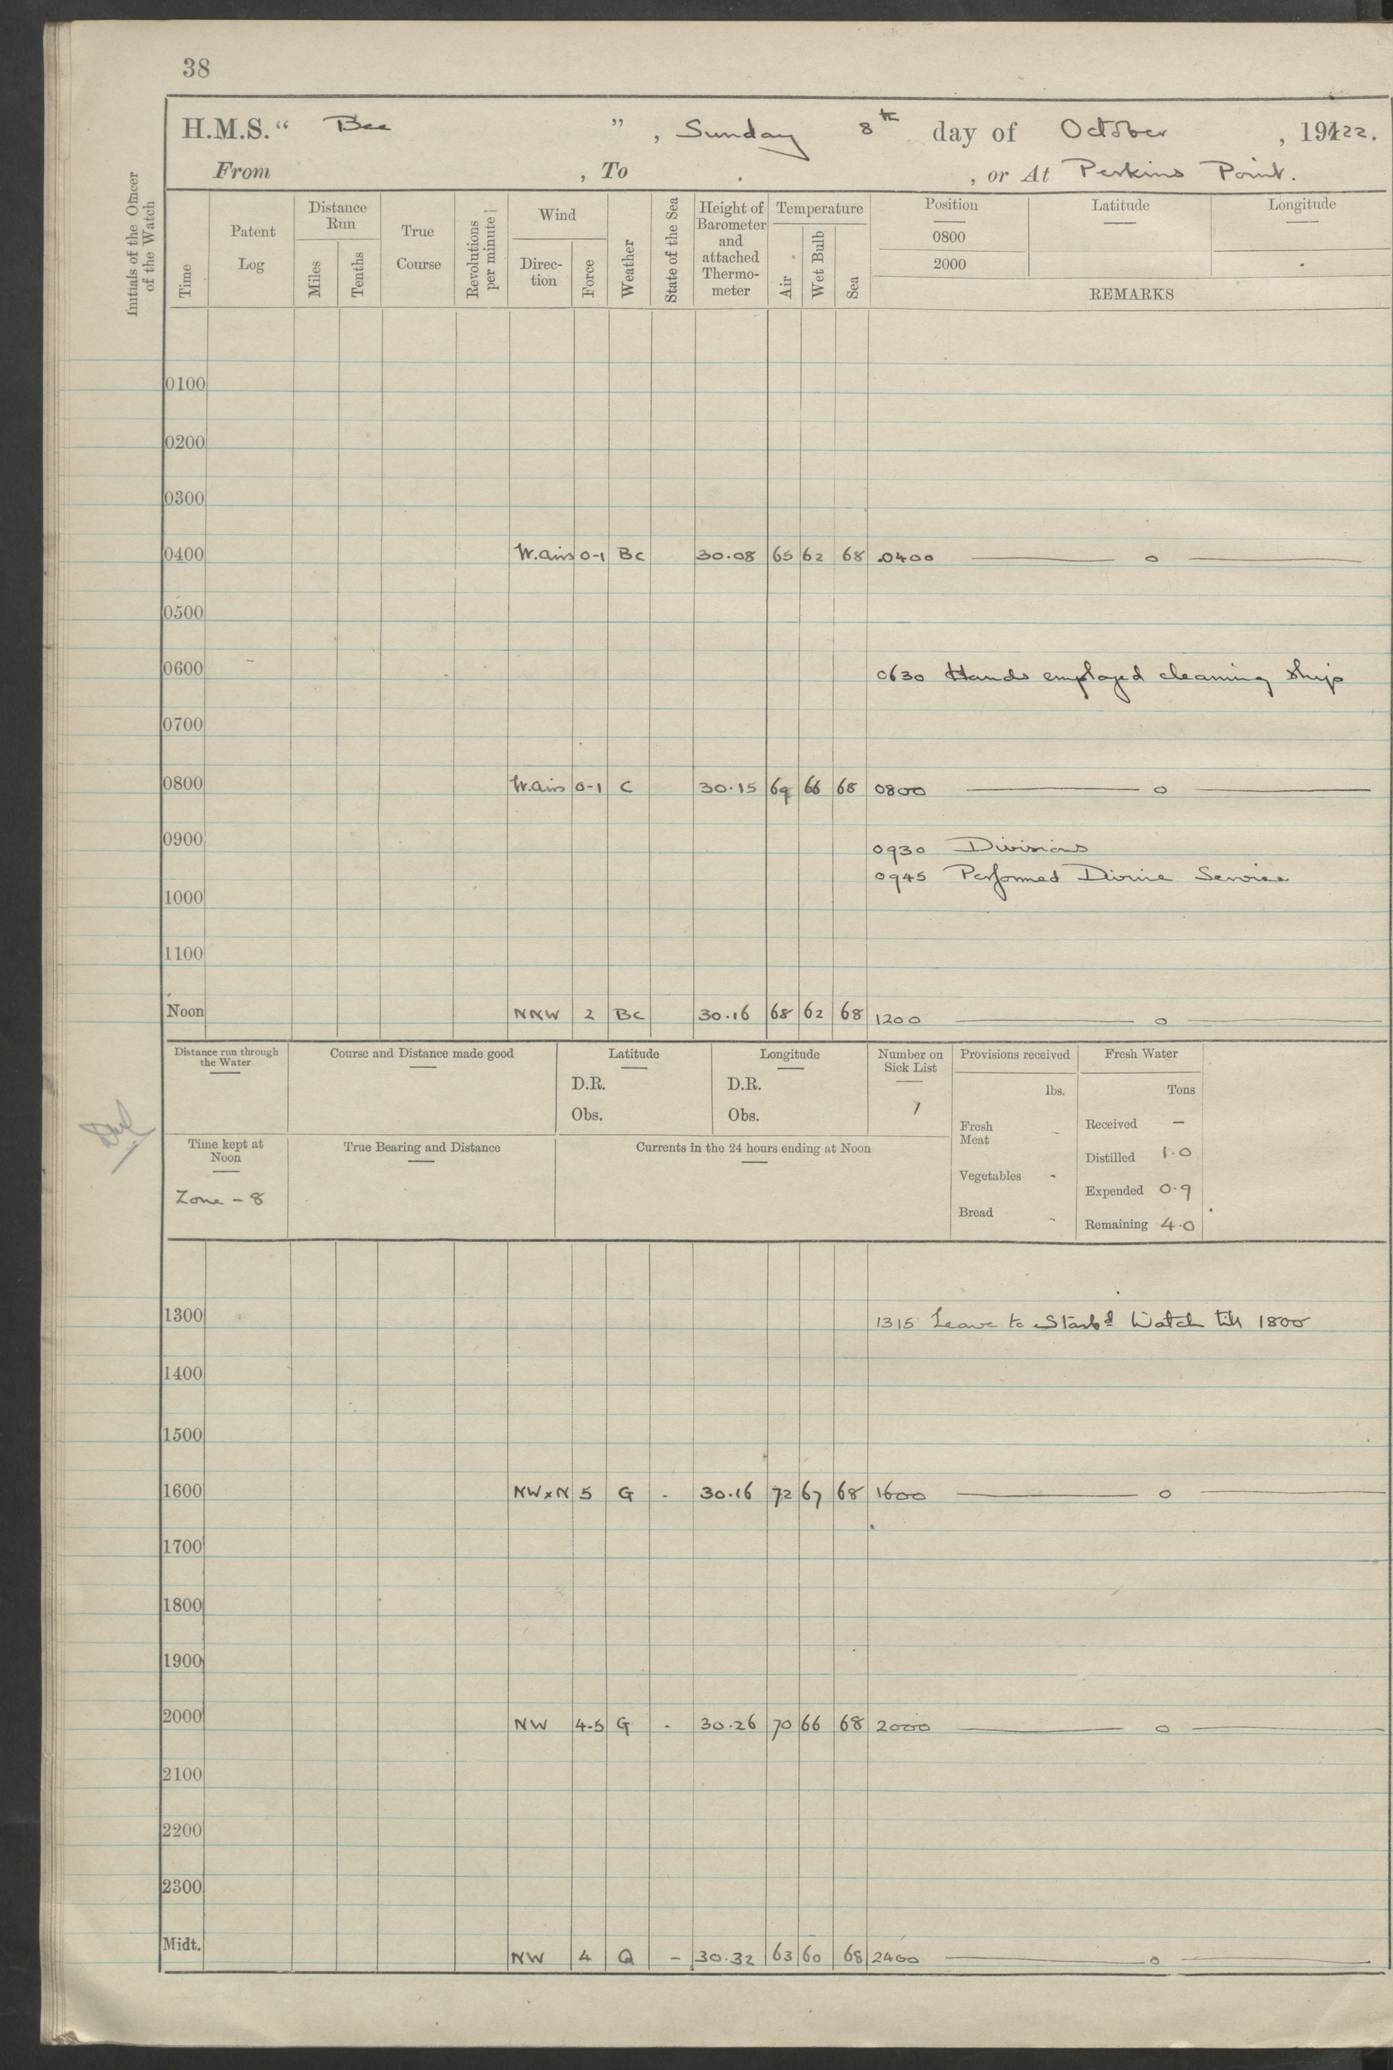 38
H.M.S. "Bee", Sunday 8th day of October, 1922.
From , To . , or At Perkins Point.
Initials of the Officer of the Watch
Time
Patent Log
Distance Run
Miles
Tenths
True Course
Revolutions per minute
Wind
Direction
Force
Weather
State of the Sea
Height of Barometer and attached Thermometer
Temperature
Air
Wet Bulb
Sea
Position
0800
2000
Latitude
Longitude
REMARKS
0100
0200
0300
0400 W.airs 0-1 Bc 30.08 65 62 68 0400 — o —
0500
0600
0630 Hands employed cleaning ship
0700
0800 W.airs 0-1 C 30.15 69 66 68 0800 — o —
0900
0930 Divisions
0945 Performed Divine Service
1000
1100
Noon NNW 2 Bc 30.16 68 62 68 1200 — o —
Distance run through the Water
Course and Distance made good
Latitude
D.R.
Obs.
Longitude
D.R.
Obs.
Number on Sick List
1
Provisions received
lbs.
Fresh Meat -
Vegetables -
Bread -
Fresh Water
Tons
Received -
Distilled 1.0
Expended 0.9
Remaining 4.0
Time kept at Noon
Zone - 8
True Bearing and Distance
Currents in the 24 hours ending at Noon
1300
1315 Leave to Starbd Watch till 1800
1400
1500
1600 NWxN 5 G - 30.16 72 67 68 1600 — o —
1700
1800
1900
2000 NW 4-5 G - 30.26 70 66 68 2000 — o —
2100
2200
2300
Midt. NW 4 Q - 30.32 63 60 68 2400 — o —